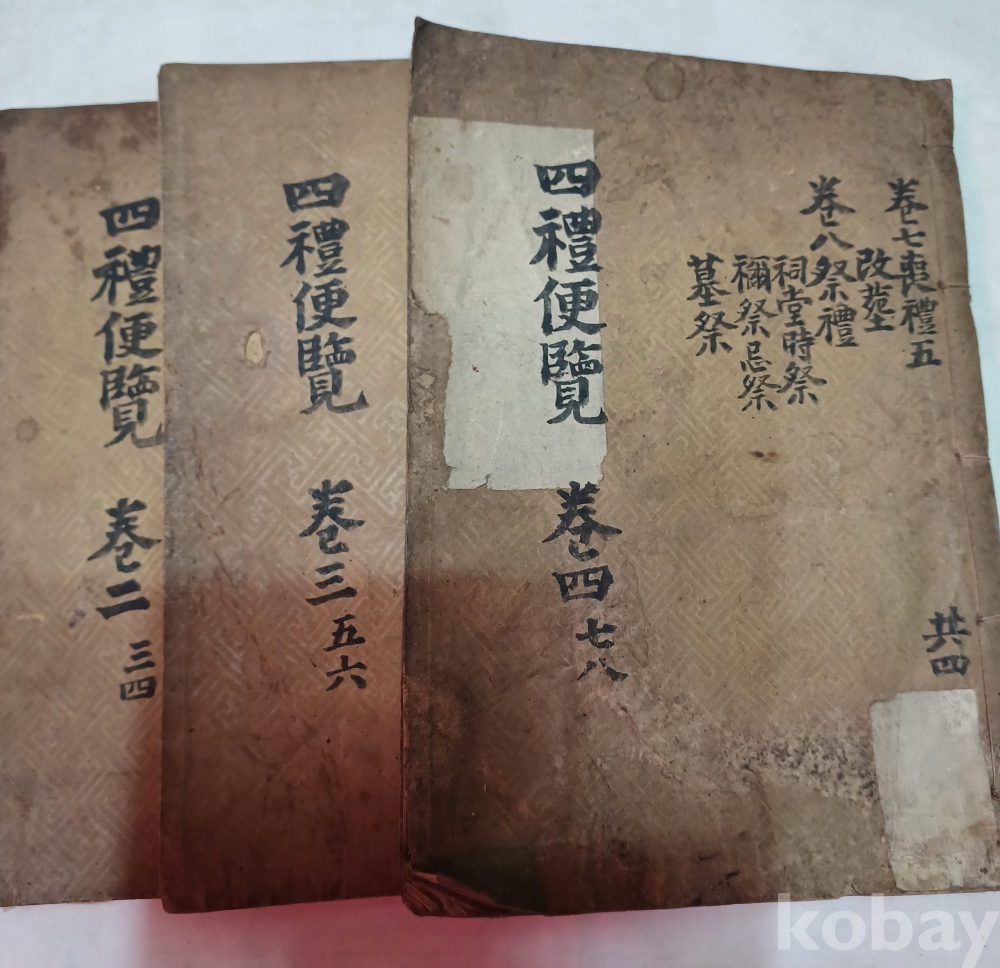 卷七喪禮五
改葬
卷八祭禮
祠堂時祭
禰祭忌祭
墓祭
共四
四禮便覽 卷四 七八
四禮便覽 卷三 五六
四禮便覽 卷二 三四
kobay